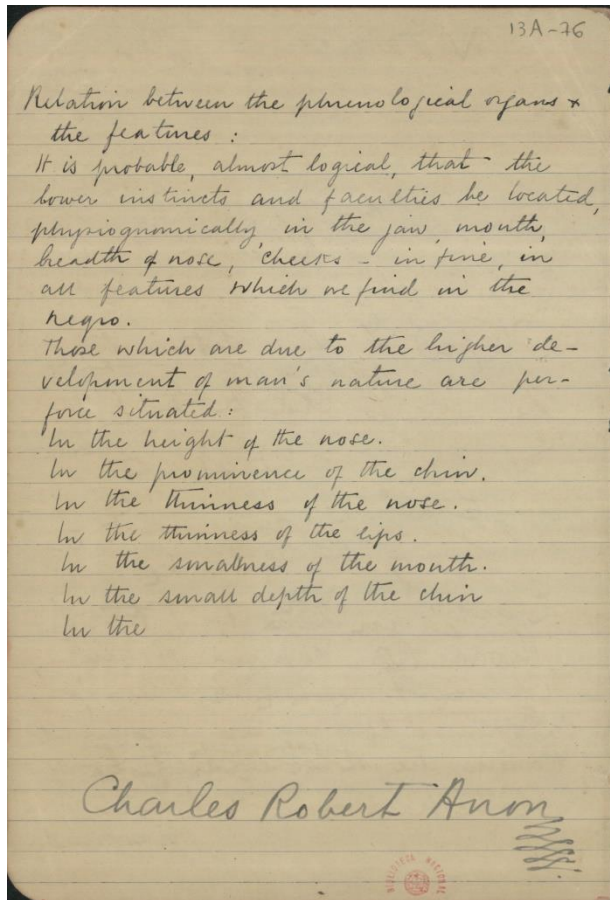 13A-76
Relation between the phrenological organs &
the features :
It is probable, almost logical, that the
lower instincts and faculties be located,
physiognomically in the jaw, mouth,
breadth of nose, cheeks - in fine, in
all features which we find in the
negro.
Those which are due to the higher de-
velopment of man's nature are per-
force situated :
In the height of the nose.
In the prominence of the chin.
In the thinness of the nose.
In the thinness of the lips.
In the smallness of the mouth.
In the small depth of the chin
In the
Charles Robert Anon
BIBLIOTECA NACIONAL